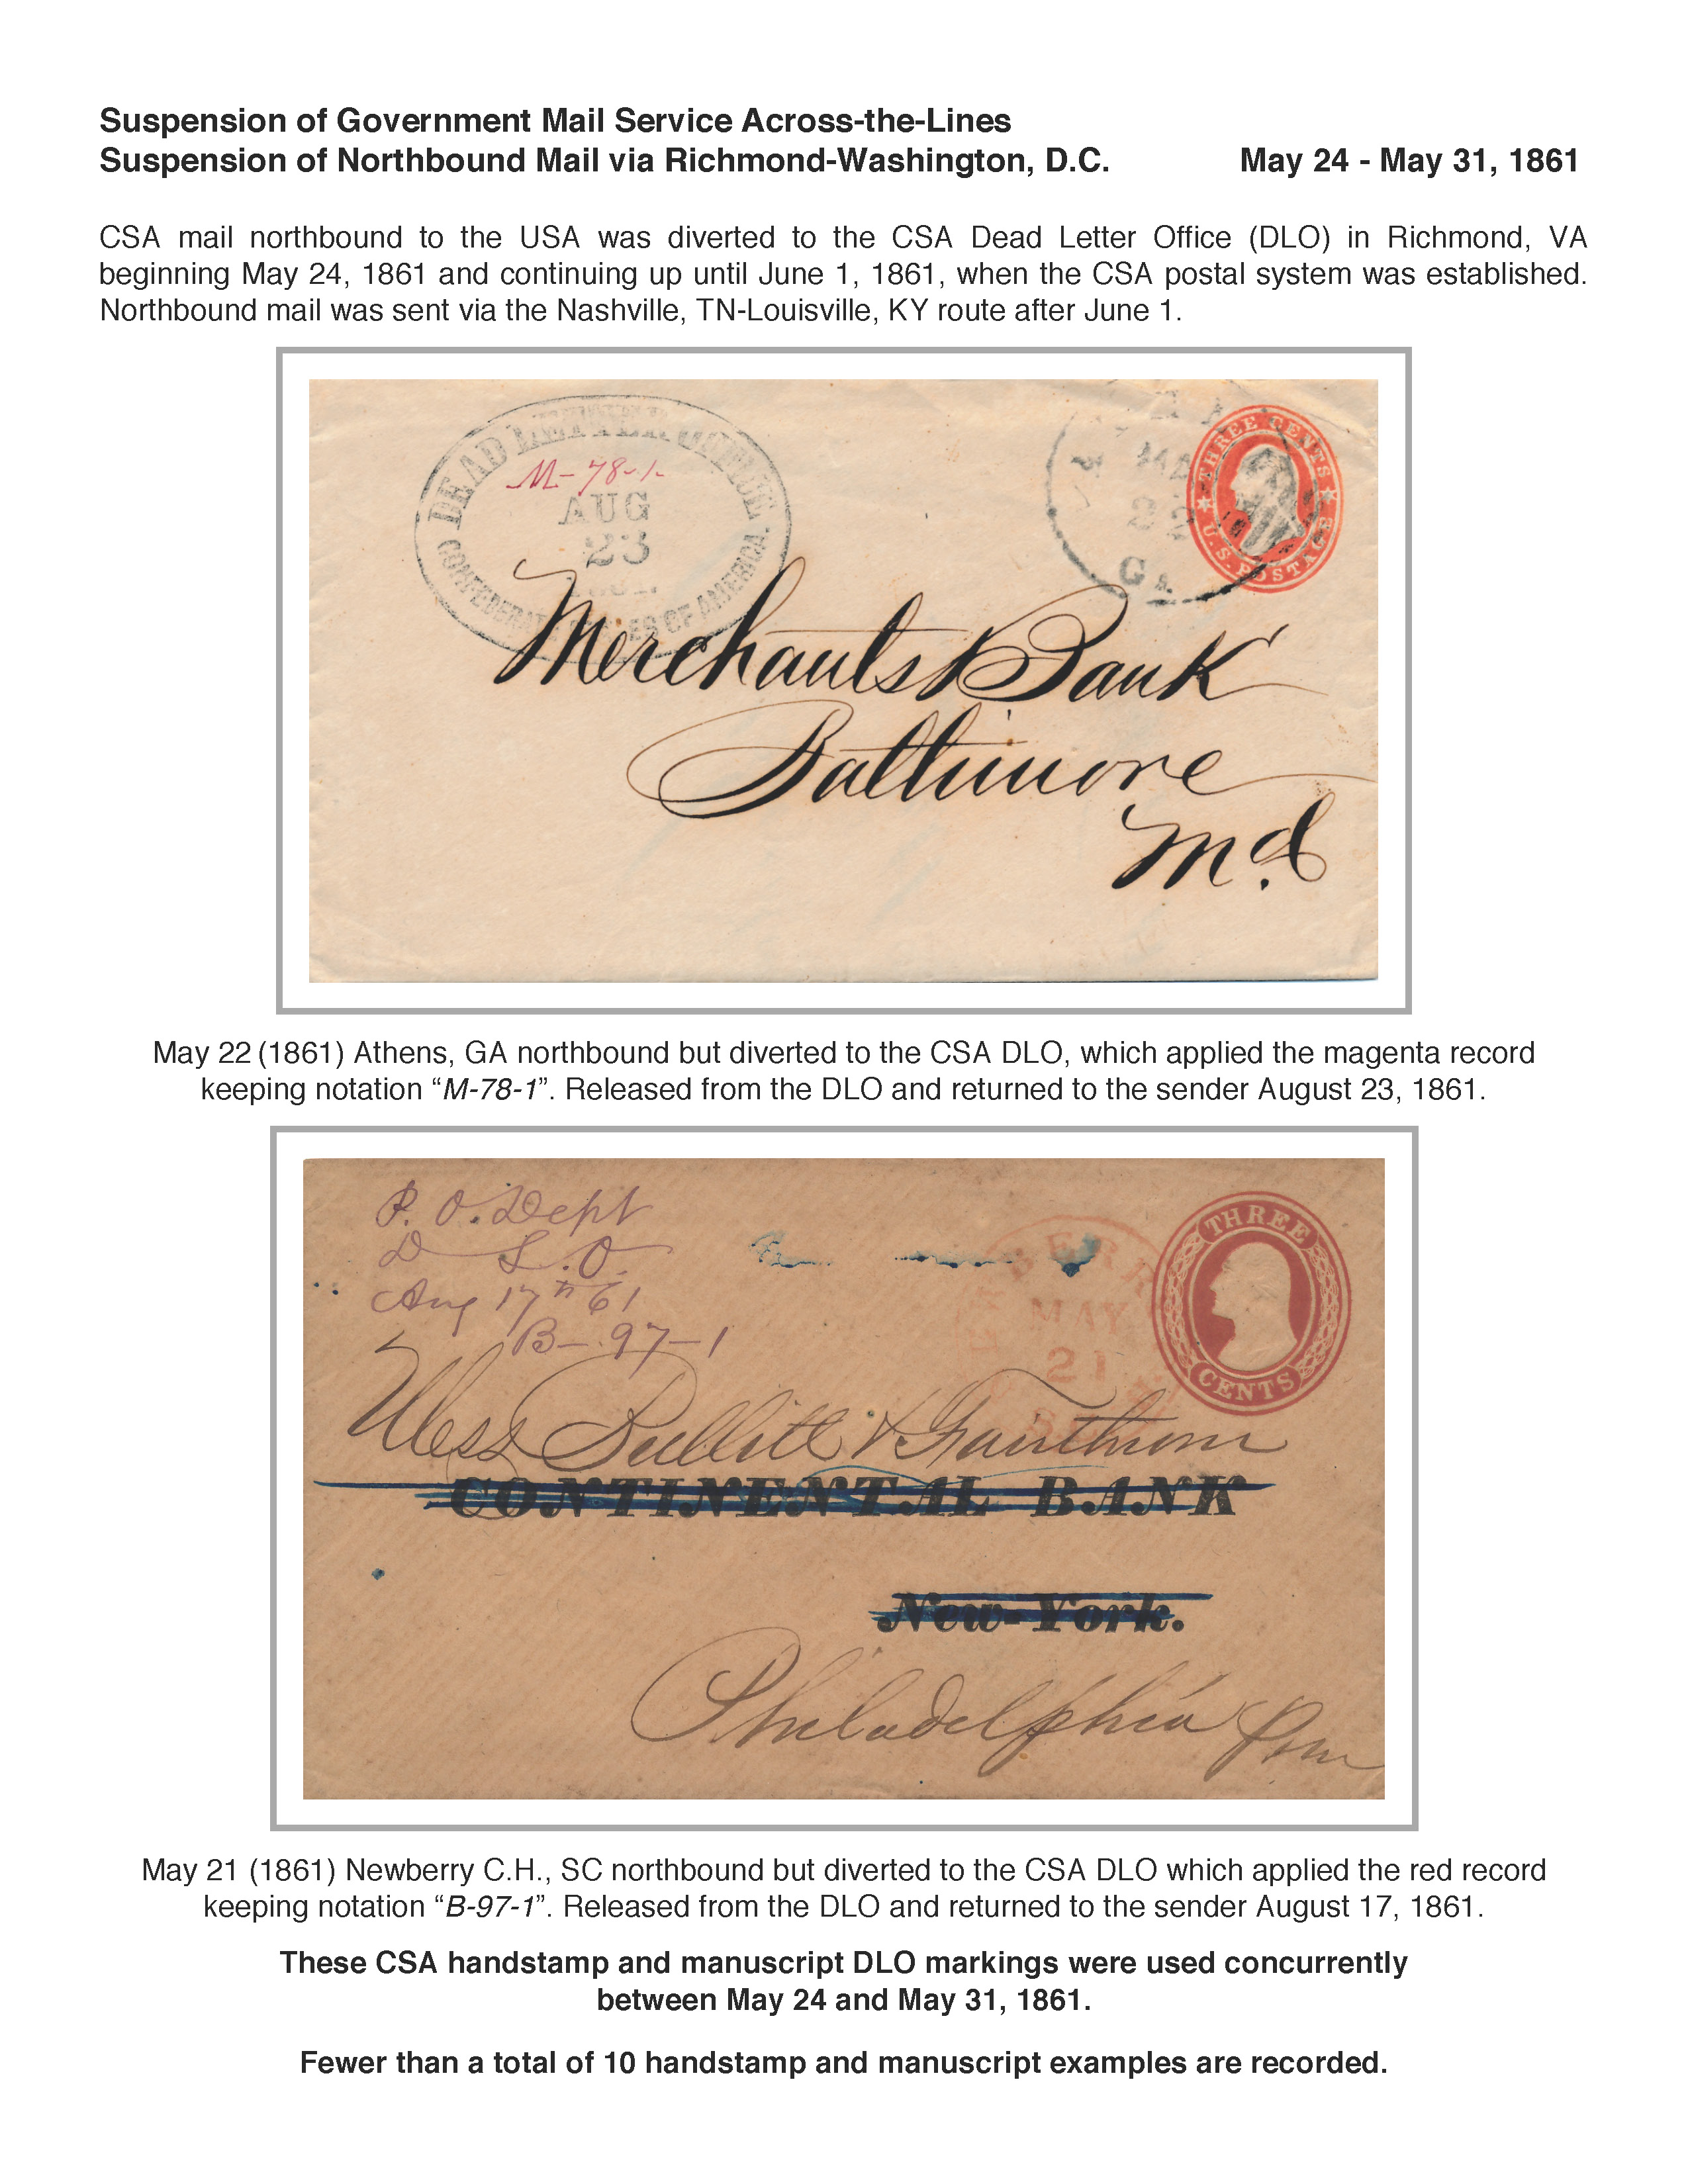 Suspension of Government Mail Service Across-the-Lines
Suspension of Northbound Mail via Richmond-Washington, D.C. May 24 - May 31, 1861
CSA mail northbound to the USA was diverted to the CSA Dead Letter Office (DLO) in Richmond, VA
beginning May 24, 1861 and continuing up until June 1, 1861, when the CSA postal system was established.
Northbound mail was sent via the Nashville, TN-Louisville, KY route after June 1.
DEAD LETTER OFFICE.
M-78-1
AUG
23
CONFEDERATE STATES OF AMERICA.
22
GA.
THREE CENTS
U.S. POSTAGE
Merchants Bank
Baltimore
Md
May 22 (1861) Athens, GA northbound but diverted to the CSA DLO, which applied the magenta record
keeping notation “M-78-1”. Released from the DLO and returned to the sender August 23, 1861.
P. O. Dept
D L. O.
Aug 17th 61
B-97-1
MAY
21
THREE
CENTS
Mess &
CONTINENTAL BANK
New-York.
Philadelphia
May 21 (1861) Newberry C.H., SC northbound but diverted to the CSA DLO which applied the red record
keeping notation “B-97-1”. Released from the DLO and returned to the sender August 17, 1861.
These CSA handstamp and manuscript DLO markings were used concurrently
between May 24 and May 31, 1861.
Fewer than a total of 10 handstamp and manuscript examples are recorded.